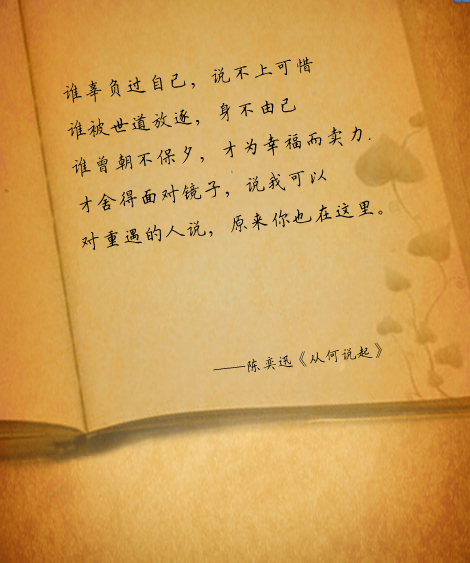 谁辜负过自己，说不上可惜
谁被世道放逐，身不由己
谁曾朝不保夕，才为幸福而卖力.
才舍得面对镜子，说我可以
对重遇的人说，原来你也在这里。
——陈奕迅《从何说起》